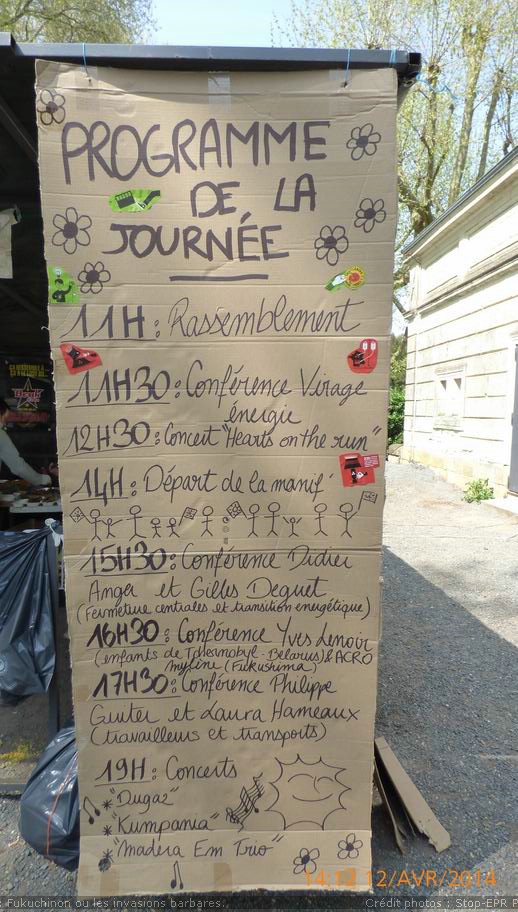 PROGRAMME
DE LA
JOURNÉE
11H : Rassemblement
11H30 : Conférence Virage
énergie
12H30 : Concert "Hearts on the run"
14H : Départ de la manif'
15H30 : Conférence Didier
Anger et Gilles Deguet
(Fermeture centrales et transition énergétique)
16H30 : Conférence Yves Lenoir
(enfants de Tchernobyl - Belarus) & ACRO
myline (Fukushima)
17H30 : Conférence Philippe
Guiter et Laura Hameaux
(travailleurs et transports)
19H : Concerts
* "Dugaz"
* "Kumpania"
* "Madera Em Trio"
14:12 12/AVR/2014
Fukuchinon ou les invasions barbares.
Crédit photos : Stop-EPR P